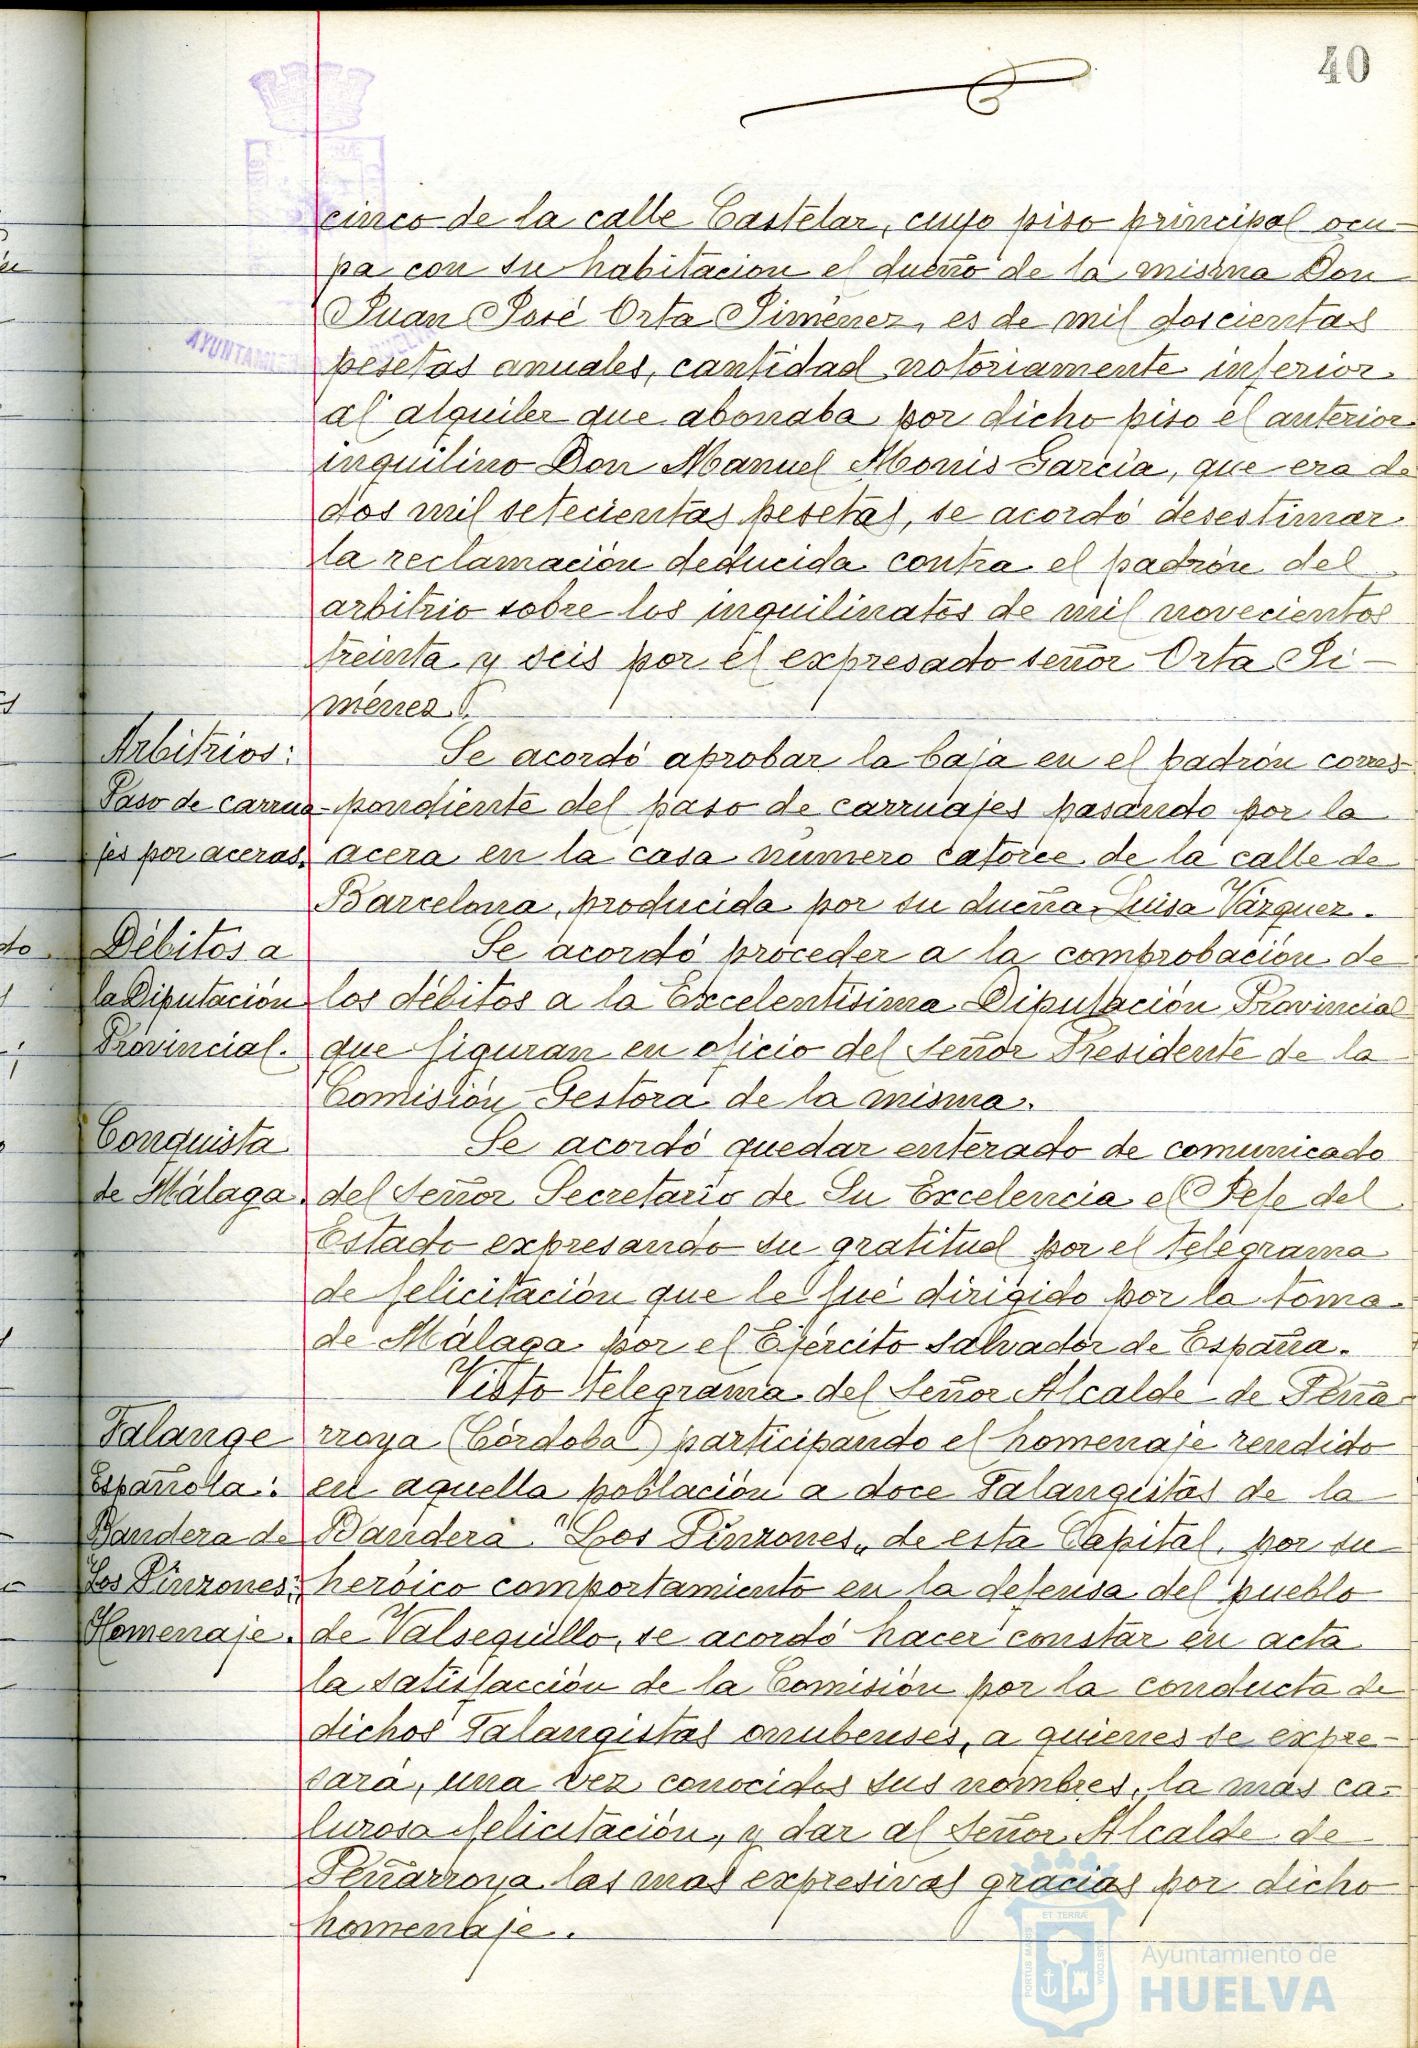 40
cinco de la calle Castelar, cuyo piso principal ocu-
pa con su habitacion el dueño de la misma Don
Juan José Orta Jiménez, es de mil doscientas
pesetas anuales, cantidad notoriamente inferior
al alquiler que abonaba por dicho piso el anterior
inquilino Don Manuel Monis García, que era de
dos mil setecientas pesetas, se acordó desestimar
la reclamación deducida contra el padrón del
arbitrio sobre los inquilinatos de mil novecientos
treinta y seis por el expresado señor Orta Ji-
ménez.
Arbitrios:
Paso de carrua-
jes por aceras.
Se acordó aprobar la baja en el padrón corres-
pondiente del paso de carruajes pasando por la
acera en la casa número catorce de la calle de
Barcelona, producida por su dueña Luisa Vázquez.
Débitos a
la Diputación
Provincial.
Se acordó proceder a la comprobación de
los débitos a la Excelentísima Diputación Provincial
que figuran en oficio del Señor Presidente de la
Comisión Gestora de la misma.
Conquista
de Málaga.
Se acordó quedar enterado de comunicado
del Señor Secretario de Su Excelencia el Jefe del
Estado expresando su gratitud por el telégrama
de felicitación que le fué dirigido por la toma
de Málaga por el Ejército salvador de España.
Falange
Española:
Bandera de
Los Pinzones:
Homenaje.
Visto telegrama del Señor Alcalde de Peña-
rroya (Córdoba) participando el homenaje rendido
en aquella población a doce Falangistas de la
Bandera "Los Pinzones" de esta Capital, por su
heróico comportamiento en la defensa del pueblo
de Valsequillo, se acordó hacer constar en acta
la satisfacción de la Comisión por la conducta de
dichos Falangistas onubenses, a quienes se expre-
sará, una vez conocidos sus nombres, la más ca-
lurosa felicitación, y dar al Señor Alcalde de
Peñarroya las mas expresivas gracias por dicho
homenaje.
ET TERRÆ
PORTUS MARIS
CUSTODIA
Ayuntamiento de
HUELVA